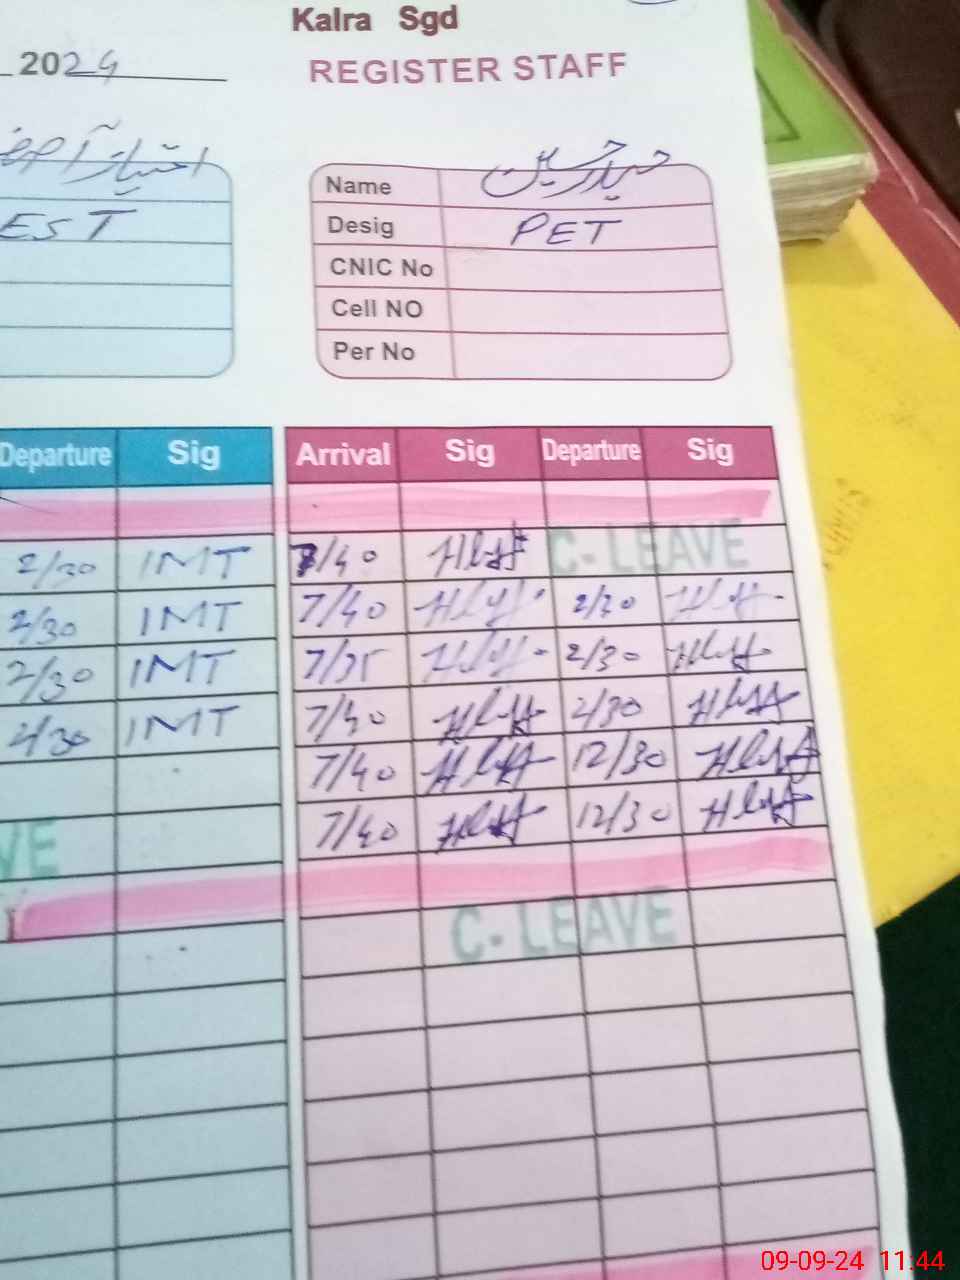 Kalra Sgd
2024 REGISTER STAFF
Name حیدر حسین
EST
Desig PET
CNIC No
Cell NO
Per No
Departure Sig Arrival Sig Departure Sig
2/30 IMT 7/40 C- LEAVE
2/30 IMT 7/40 2/30
2/30 IMT 7/35 2/30
2/30 IMT 7/40 2/30
7/40 12/30
7/40 12/30
C- LEAVE
09-09-24 11:44